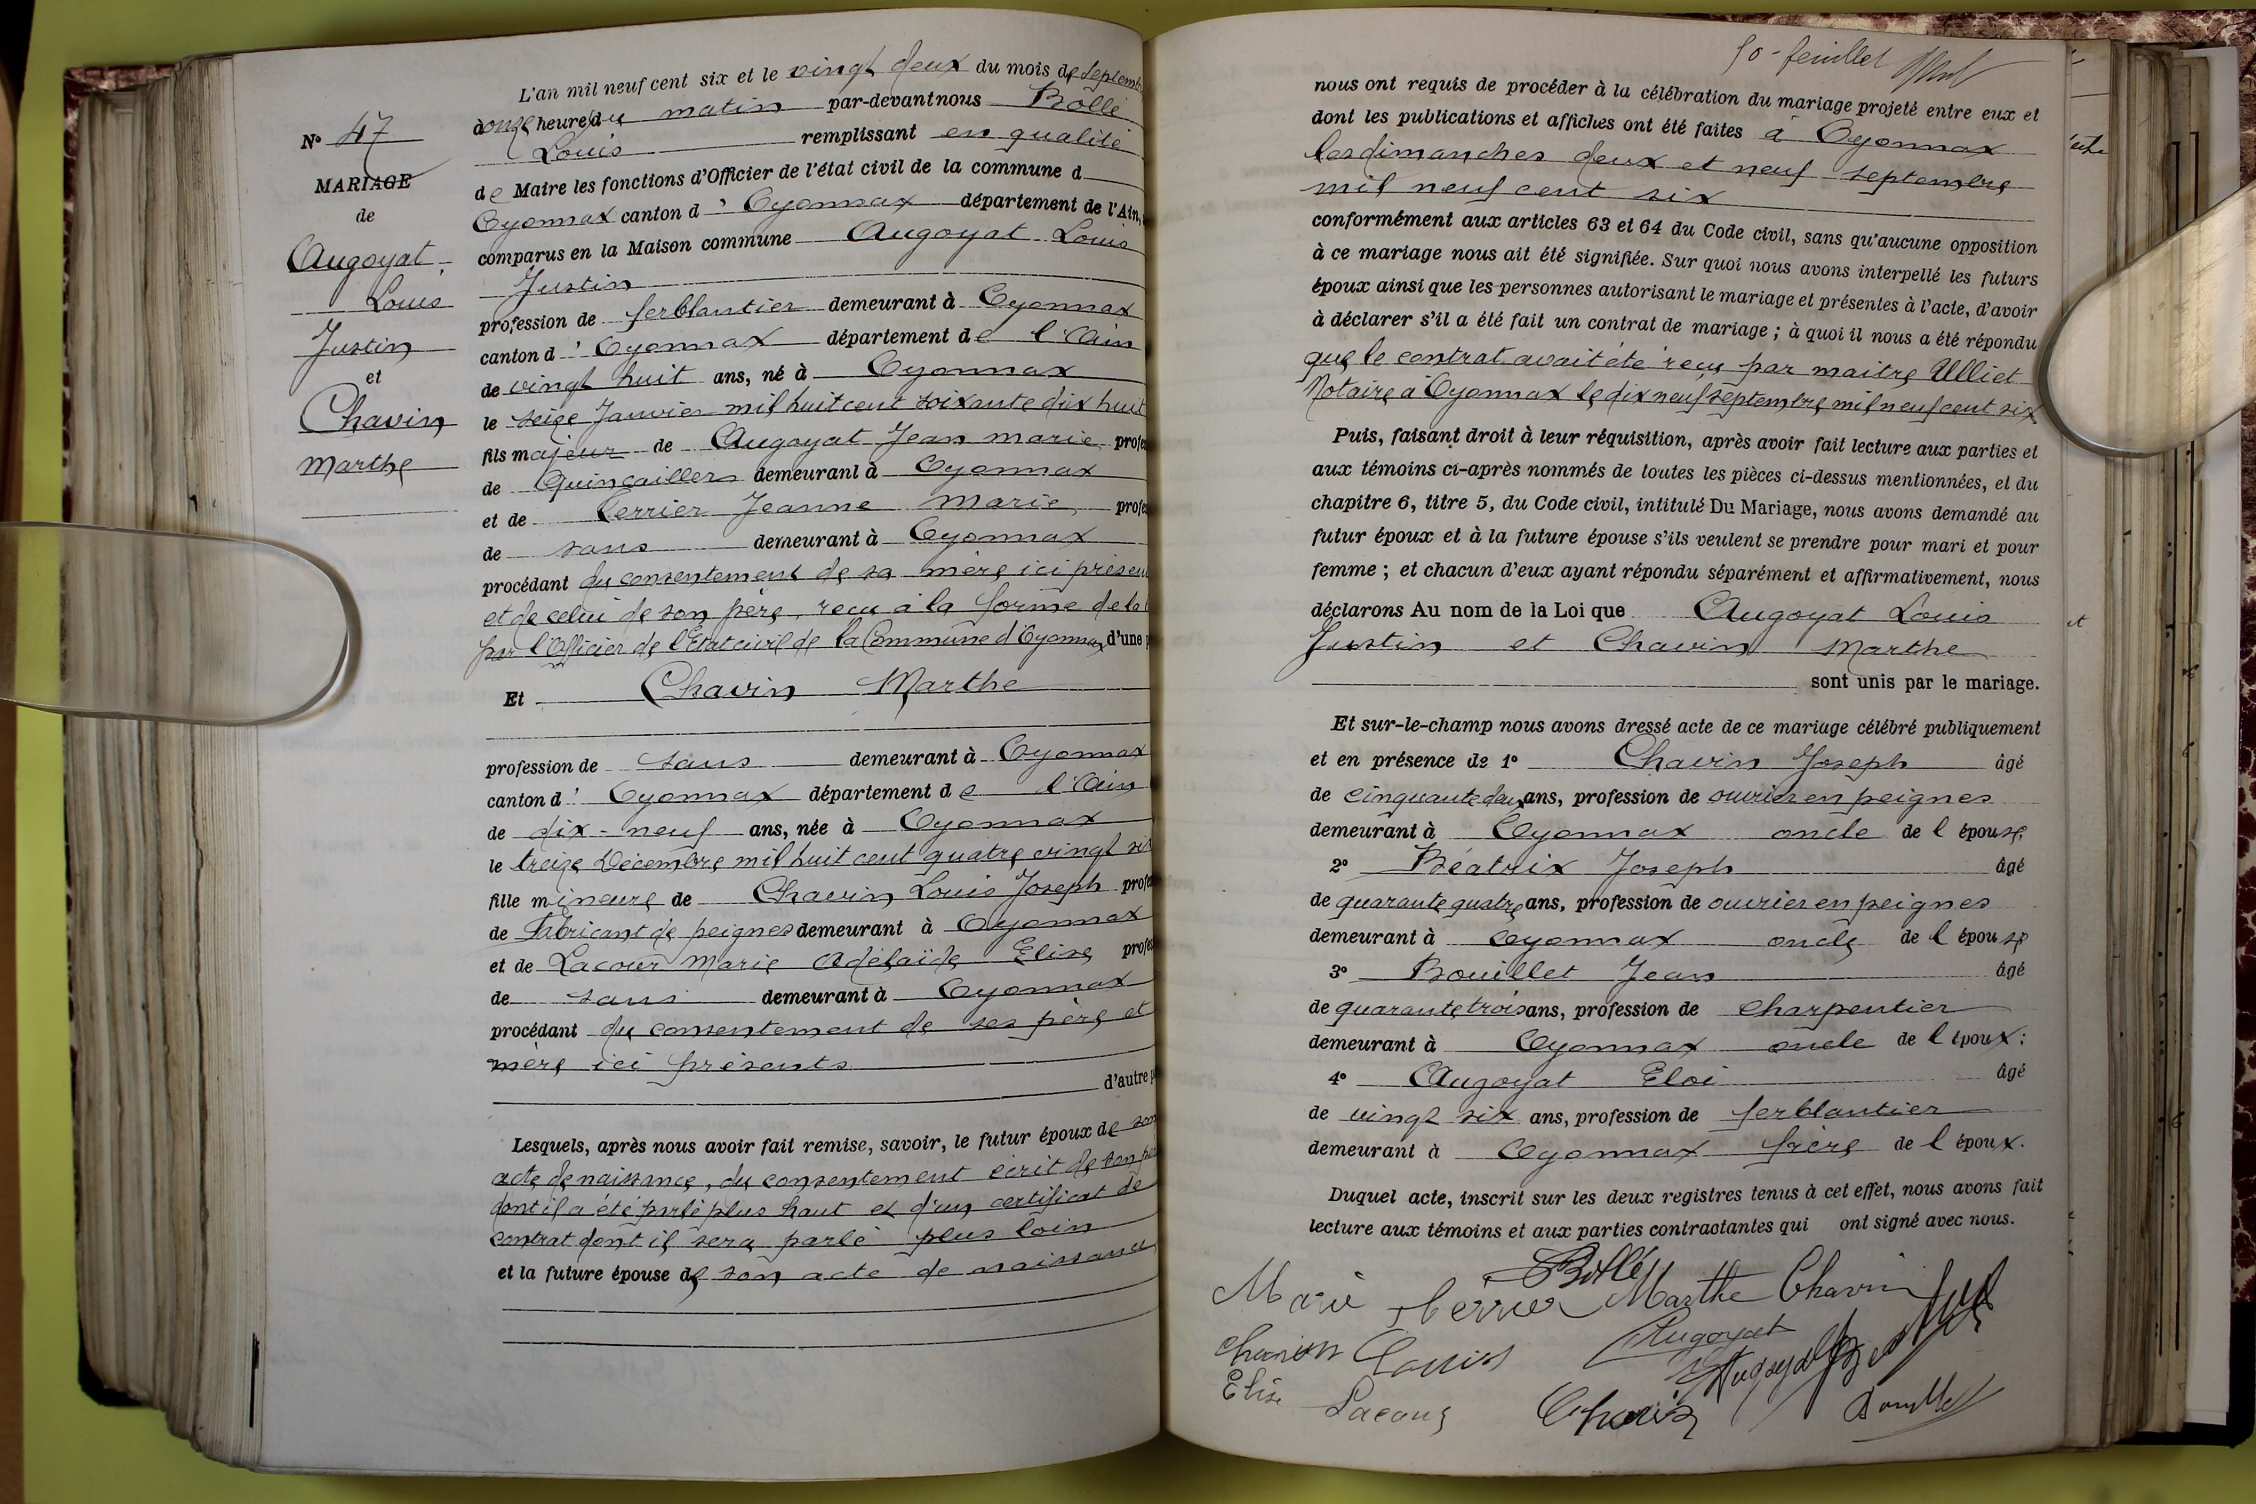 N° 47
MARIAGE
de
Augoyat
Louis
Justin
et
Chavin
Marthe
L'an mil neuf cent six et le vingt deux du mois de Septemb
à onze heures du matin par-devant nous Bollé
Louis remplissant en qualité
de Maire les fonctions d'Officier de l'état civil de la commune d
Oyonnax canton d' Oyonnax département de l'Ain,
comparus en la Maison commune Augoyat Louis
Justin
profession de ferblantier demeurant à Oyonnax
canton d' Oyonnax département de l'Ain
de vingt huit ans, né à Oyonnax
le seize Janvier mil huit cent soixante dix huit
fils majeur de Augoyat Jean marie profes
de Quincailler demeurant à Oyonnax
et de Perrier Jeanne Marie profes
de sans demeurant à Oyonnax
procédant du consentement de sa mère ici présen
et de celui de son père, reçu à la forme de la
par l'Officier de l'Etat civil de la Commune d'Oyonnax d'une p
Et Chavin Marthe
profession de sans demeurant à Oyonnax
canton d' Oyonnax département de l'Ain
de dix-neuf ans, née à Oyonnax
le treize Décembre mil huit cent quatre vingt six
fille mineure de Chavin Louis Joseph profes
de Fabricant de peignes demeurant à Oyonnax
et de Lacour Marie Adélaïde Elise profes
de sans demeurant à Oyonnax
procédant du consentement de ses père et
mère ici présents
d'autre p
Lesquels, après nous avoir fait remise, savoir, le futur époux de son
acte de naissance, du consentement écrit de son pè
dont il a été parlé plus haut et d'un certificat de
contrat dont il sera parlé plus loin
et la future épouse de son acte de naissance
50e feuillet
nous ont requis de procéder à la célébration du mariage projeté entre eux et
dont les publications et affiches ont été faites à Oyonnax
les dimanches deux et neuf septembre
mil neuf cent six
conformément aux articles 63 et 64 du Code civil, sans qu'aucune opposition
à ce mariage nous ait été signifiée. Sur quoi nous avons interpellé les futurs
époux ainsi que les personnes autorisant le mariage et présentes à l'acte, d'avoir
à déclarer s'il a été fait un contrat de mariage ; à quoi il nous a été répondu
que le contrat avait été reçu par maitre Ulliet
Notaire a Oyonnax le dix neuf septembre mil neuf cent six
Puis, faisant droit à leur réquisition, après avoir fait lecture aux parties et
aux témoins ci-après nommés de toutes les pièces ci-dessus mentionnées, et du
chapitre 6, titre 5, du Code civil, intitulé Du Mariage, nous avons demandé au
futur époux et à la future épouse s'ils veulent se prendre pour mari et pour
femme ; et chacun d'eux ayant répondu séparément et affirmativement, nous
déclarons Au nom de la Loi que Augoyat Louis
Justin et Chavin Marthe
sont unis par le mariage.
Et sur-le-champ nous avons dressé acte de ce mariage célébré publiquement
et en présence de 1° Chavin Joseph âgé
de cinquante deux ans, profession de ouvrier en peignes
demeurant à Oyonnax oncle de l'épouse
2° Béatrix Joseph âgé
de quarante quatre ans, profession de ouvrier en peignes
demeurant à Oyonnax oncle de l'épouse
3° Bouillet Jean âgé
de quarante trois ans, profession de charpentier
demeurant à Oyonnax oncle de l'époux :
4° Augoyat Eloi âgé
de vingt six ans, profession de ferblantier
demeurant à Oyonnax frère de l'époux.
Duquel acte, inscrit sur les deux registres tenus à cet effet, nous avons fait
lecture aux témoins et aux parties contractantes qui ont signé avec nous.
Bollé
Marie Perrier Marthe Chavin
Chavin Louis Augoyat
Augoyat
Elise Lacour Chavin Bouillet